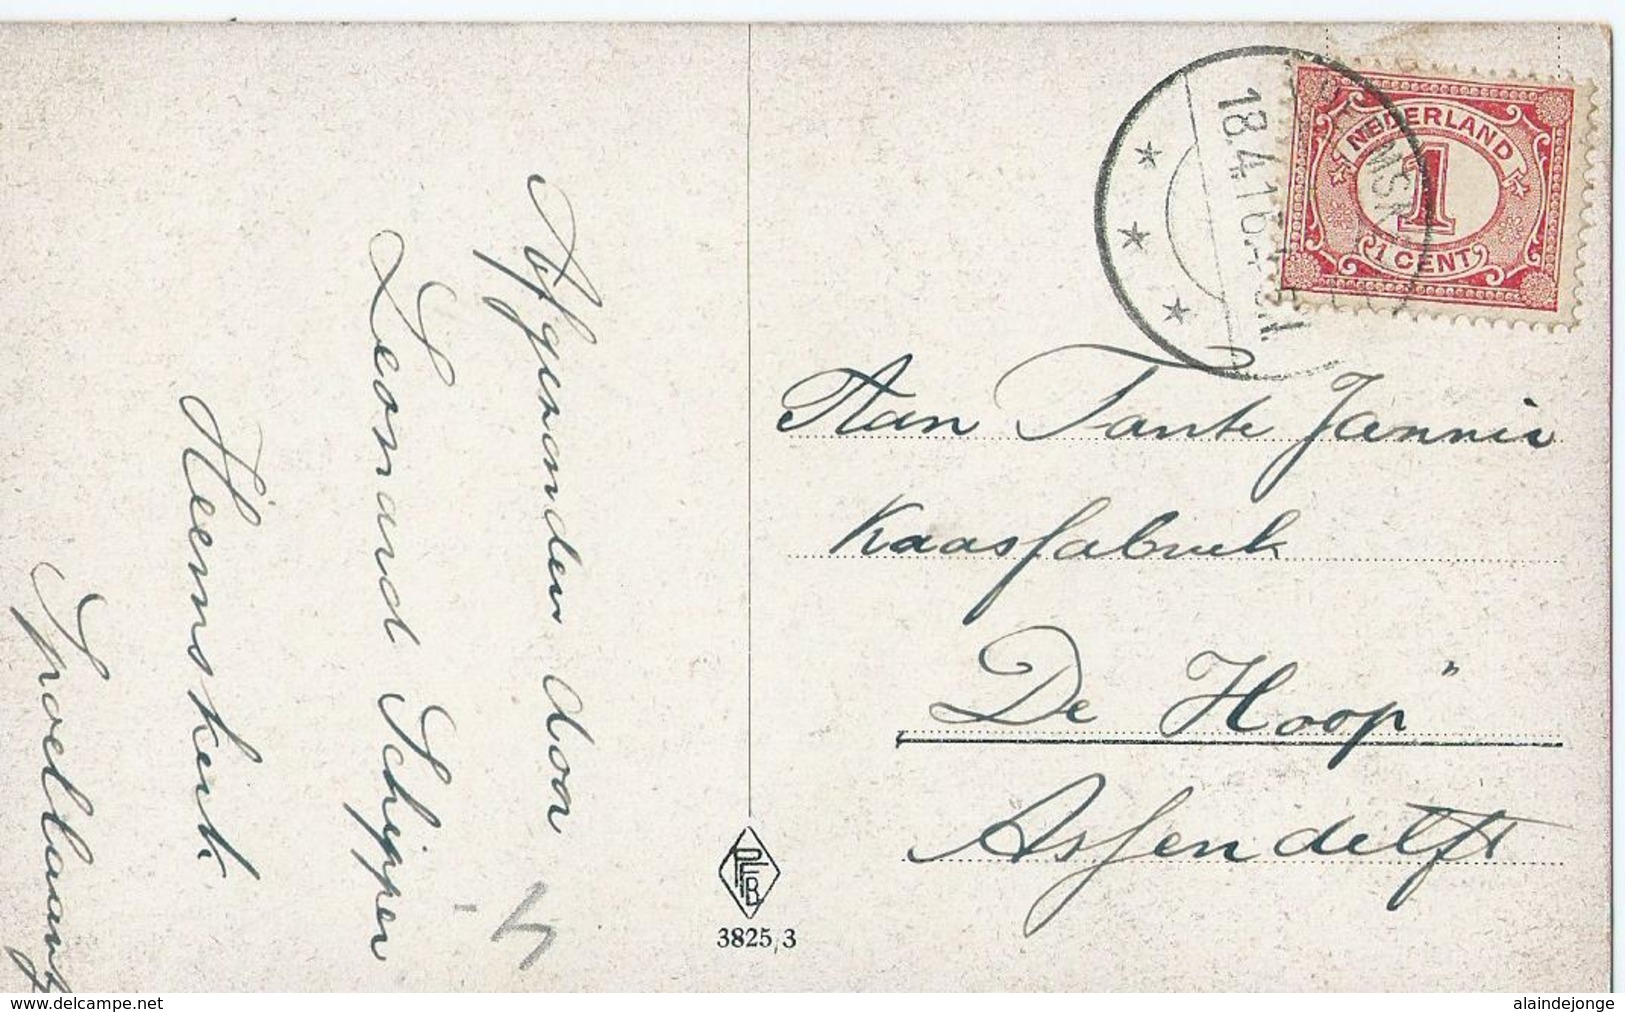 Afgezonden door
Leonard Schipper
Heemskerk
Spoellaan
18.4.16.
NEDERLAND
1
1 CENT
Aan Tante Jannie
Kaasfabriek
De Hoop"
Assendelft
PFB
3825,3
www.delcampe.net
alaindejonge